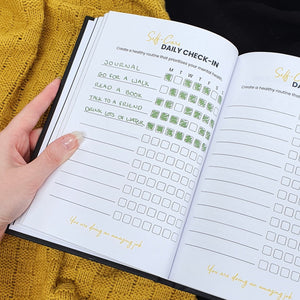 Self-Care
DAILY CHECK-IN
Create a healthy routine that prioritizes your mental health.
M T W T F S S
JOURNAL
GO FOR A WALK
READ A BOOK
TALK TO A FRIEND
DRINK LOTS OF WATER
You are doing an amazing job
Self-Ca
DAILY
Create a healthy routine that
You are doing an a